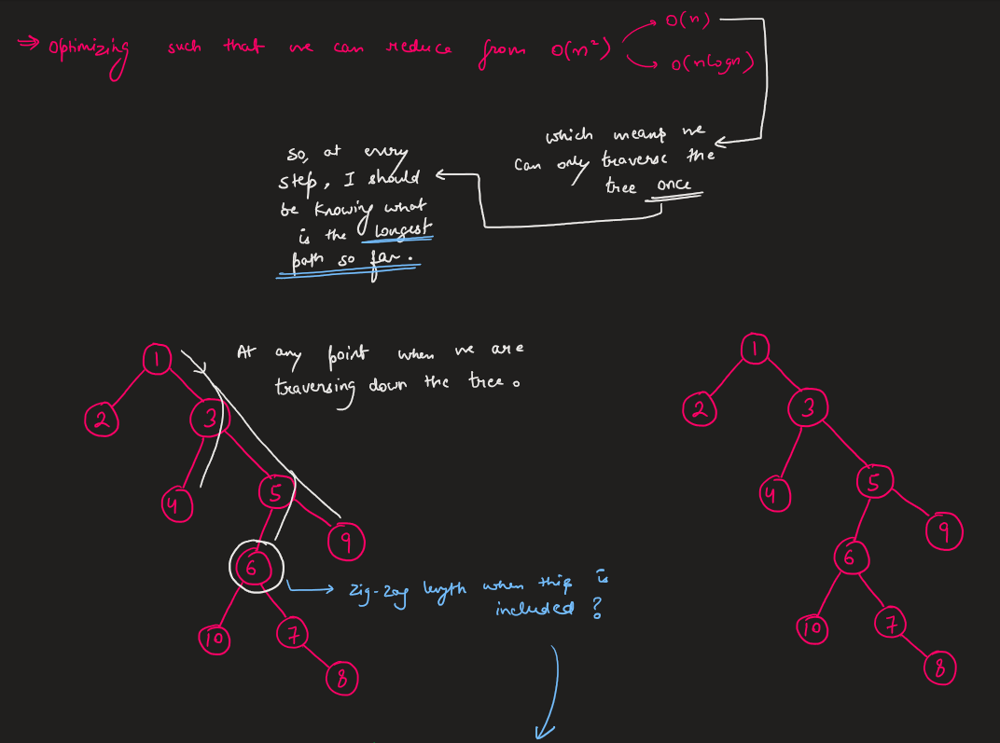 ⇒ Optimizing such that we can reduce from O(n²)
O(n)
O(nlogn)
which means we
can only traverse the
tree once
so, at every
step, I should
be knowing what
is the longest
path so far.
At any point when we are
traversing down the tree.
1
2
3
4
5
9
6
10
7
8
zig-zag length when this is
included?
1
2
3
4
5
9
6
10
7
8